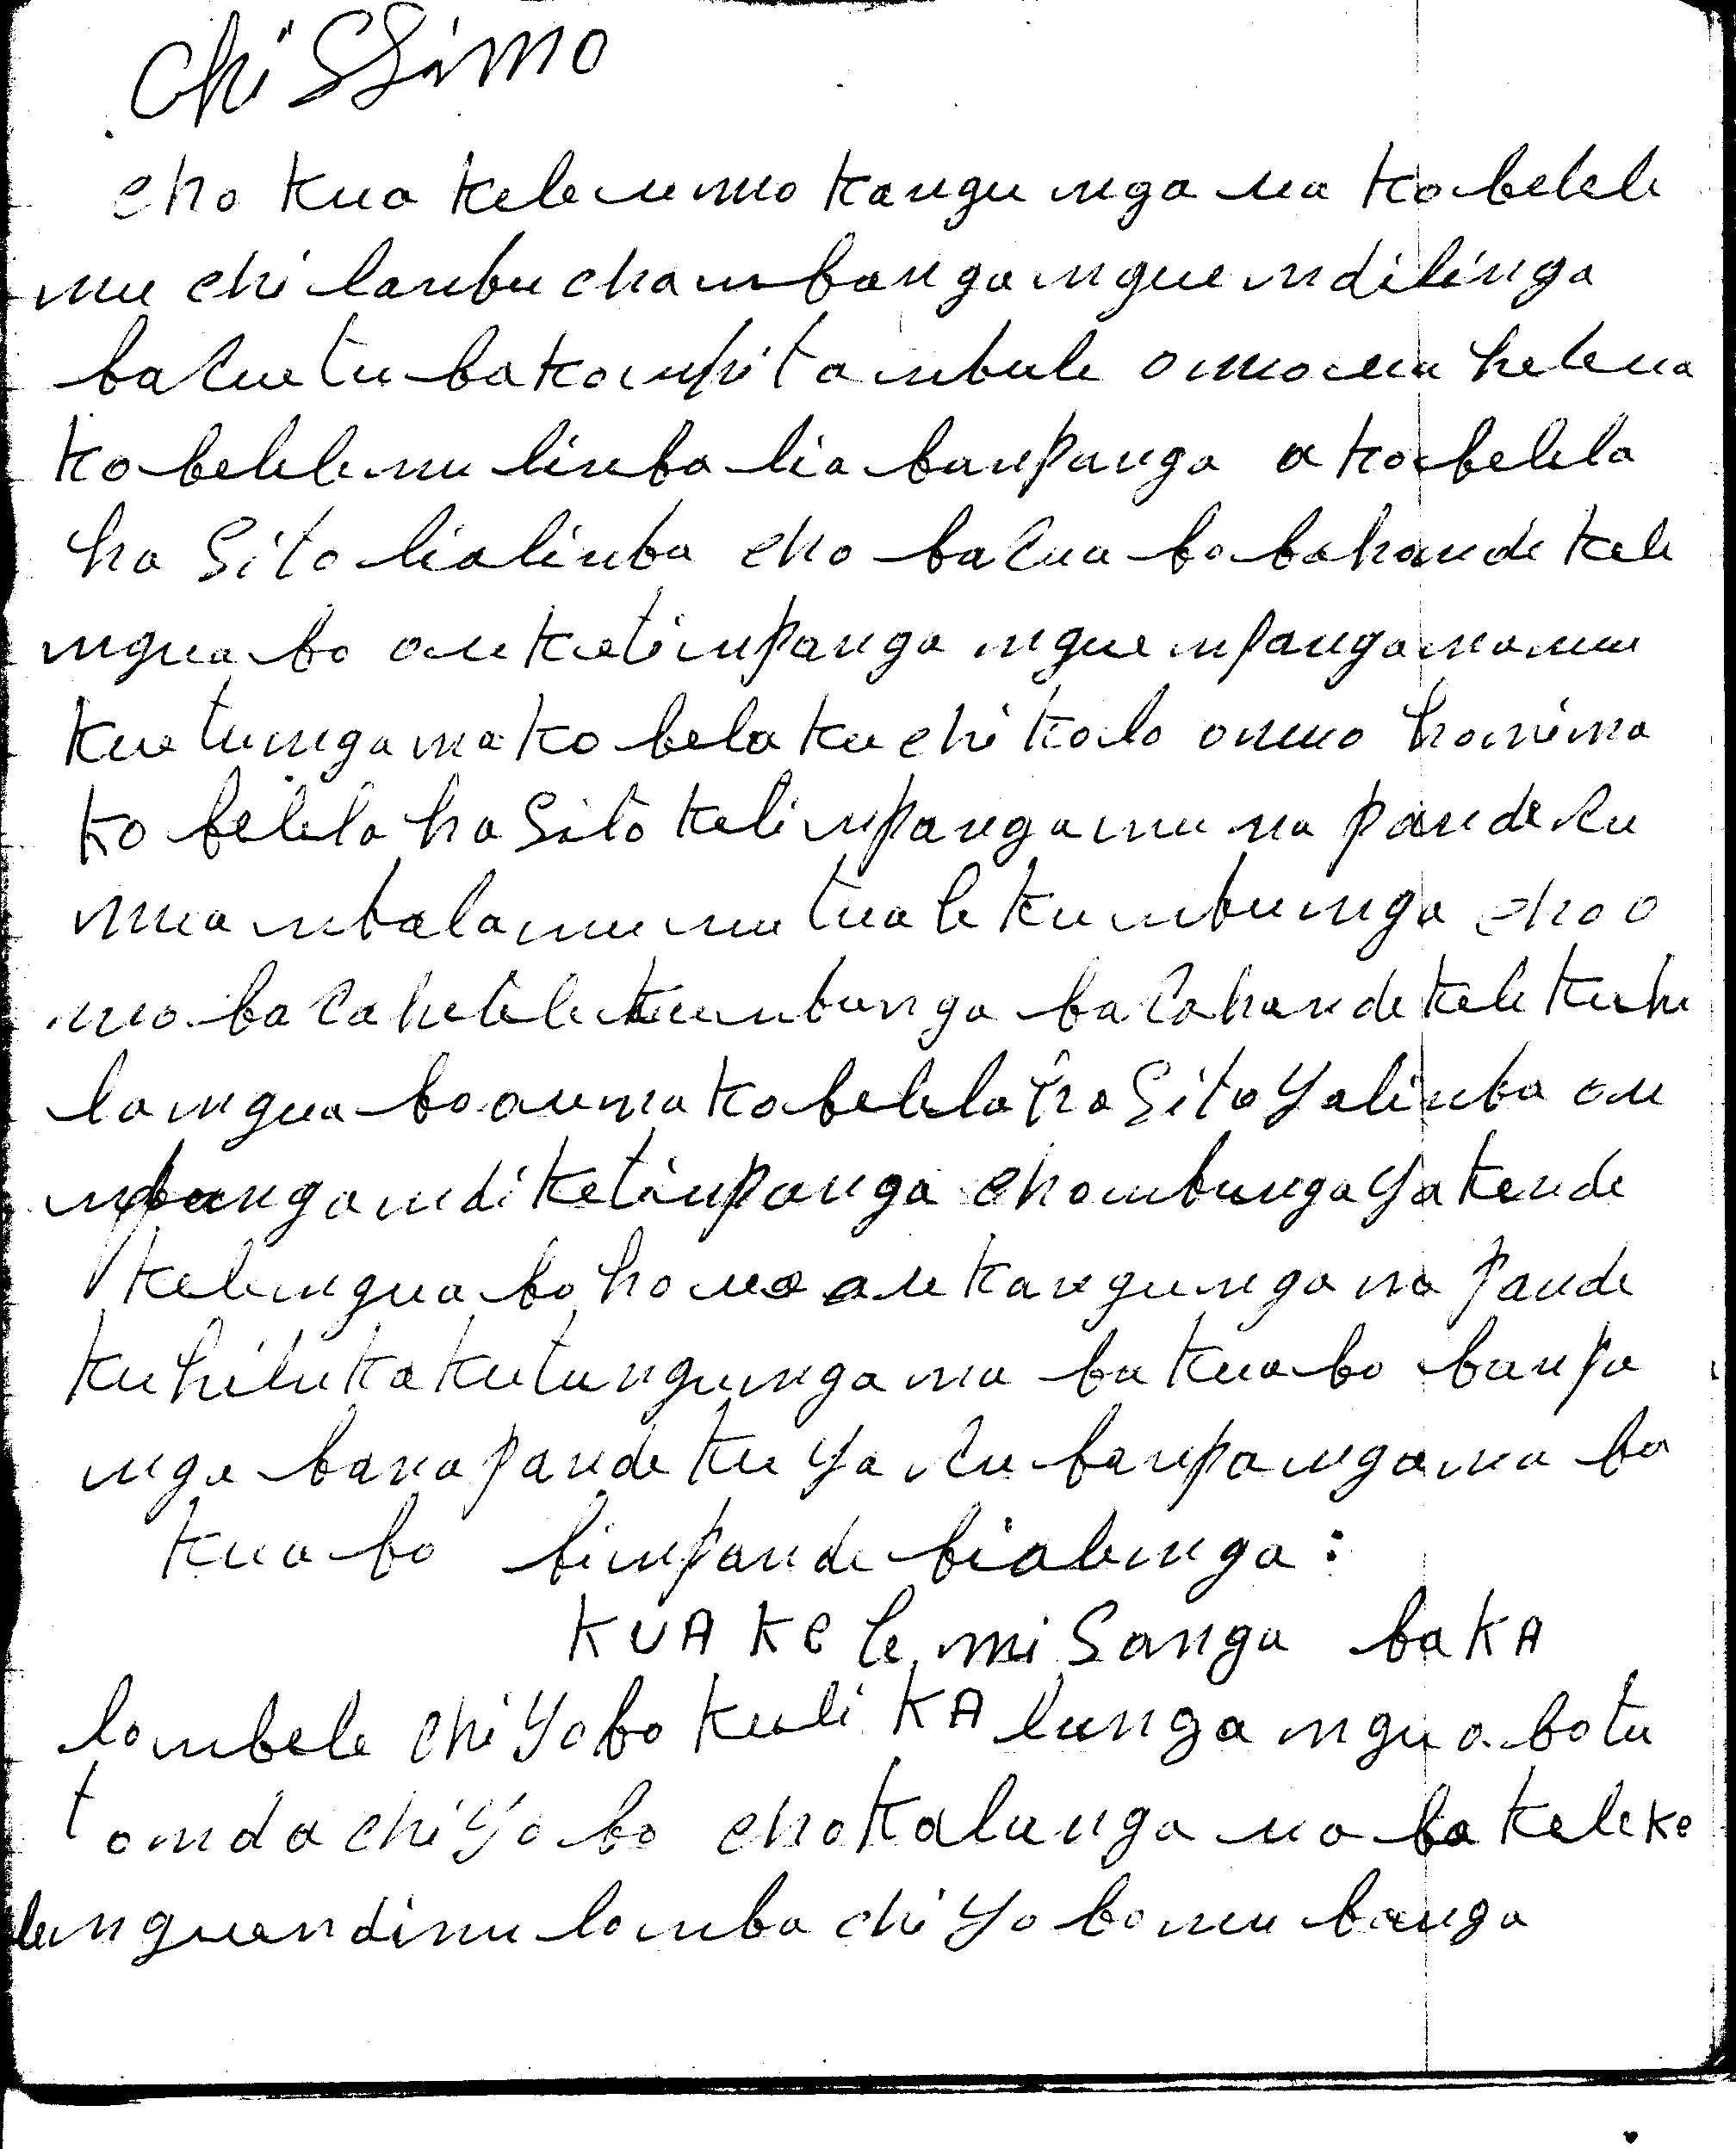 Chissimo
cho kua kele umo kangu nga na kobelele
mu chi lanbu cha mbanga ngue ndilinga
bacue tu bakampita mbule omo ua helena
kobelele mu linba lia banpanga a kobelela
ha Sito lialinba cho bacua ba bahande kele
ngua bo au ketinpanga ngue npanga na mu
kue tu nga na kobela ku chi kalo omo hanima
ko belela ha Sito keli npanga mu na pande cu
mua mbala mu mu tuale ku mbunga cho o
mo ba ca hetele ku mbunga ba cahande kele kuhi
la ngua bo au na kobelela ha Sito ya linba au
npanga ndi ketinpanga cho mbunga ya kende
kele ngua bo ho ua au kangu nga na pande
kuhiluka kutungu nga na ba kuabo banpa
nga bana pande ku ya cu banpanga na ba
kuabo binpande bialunga :
KUA KE le mi Sanga ba KA
lombele chi Yabo kuli KA lunga ngua bo tu
tonda chi Ya bo cho kalunga ua ba keleke
le nguendinu lomba chi Ya bo mu banga